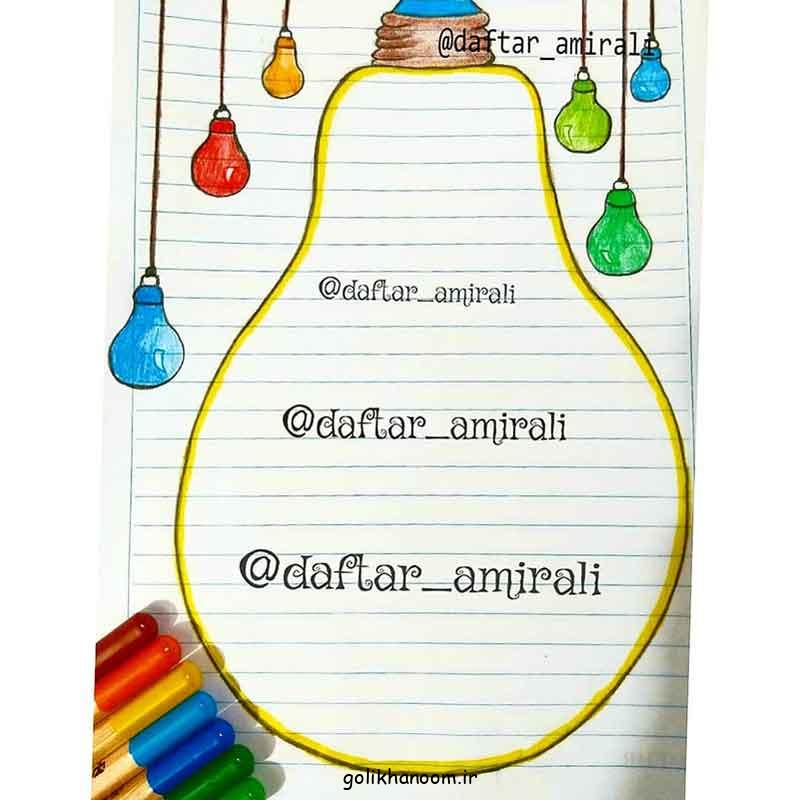 @daftar_amirali
@daftar_amirali
@daftar_amirali
@daftar_amirali
golikhanoom.ir